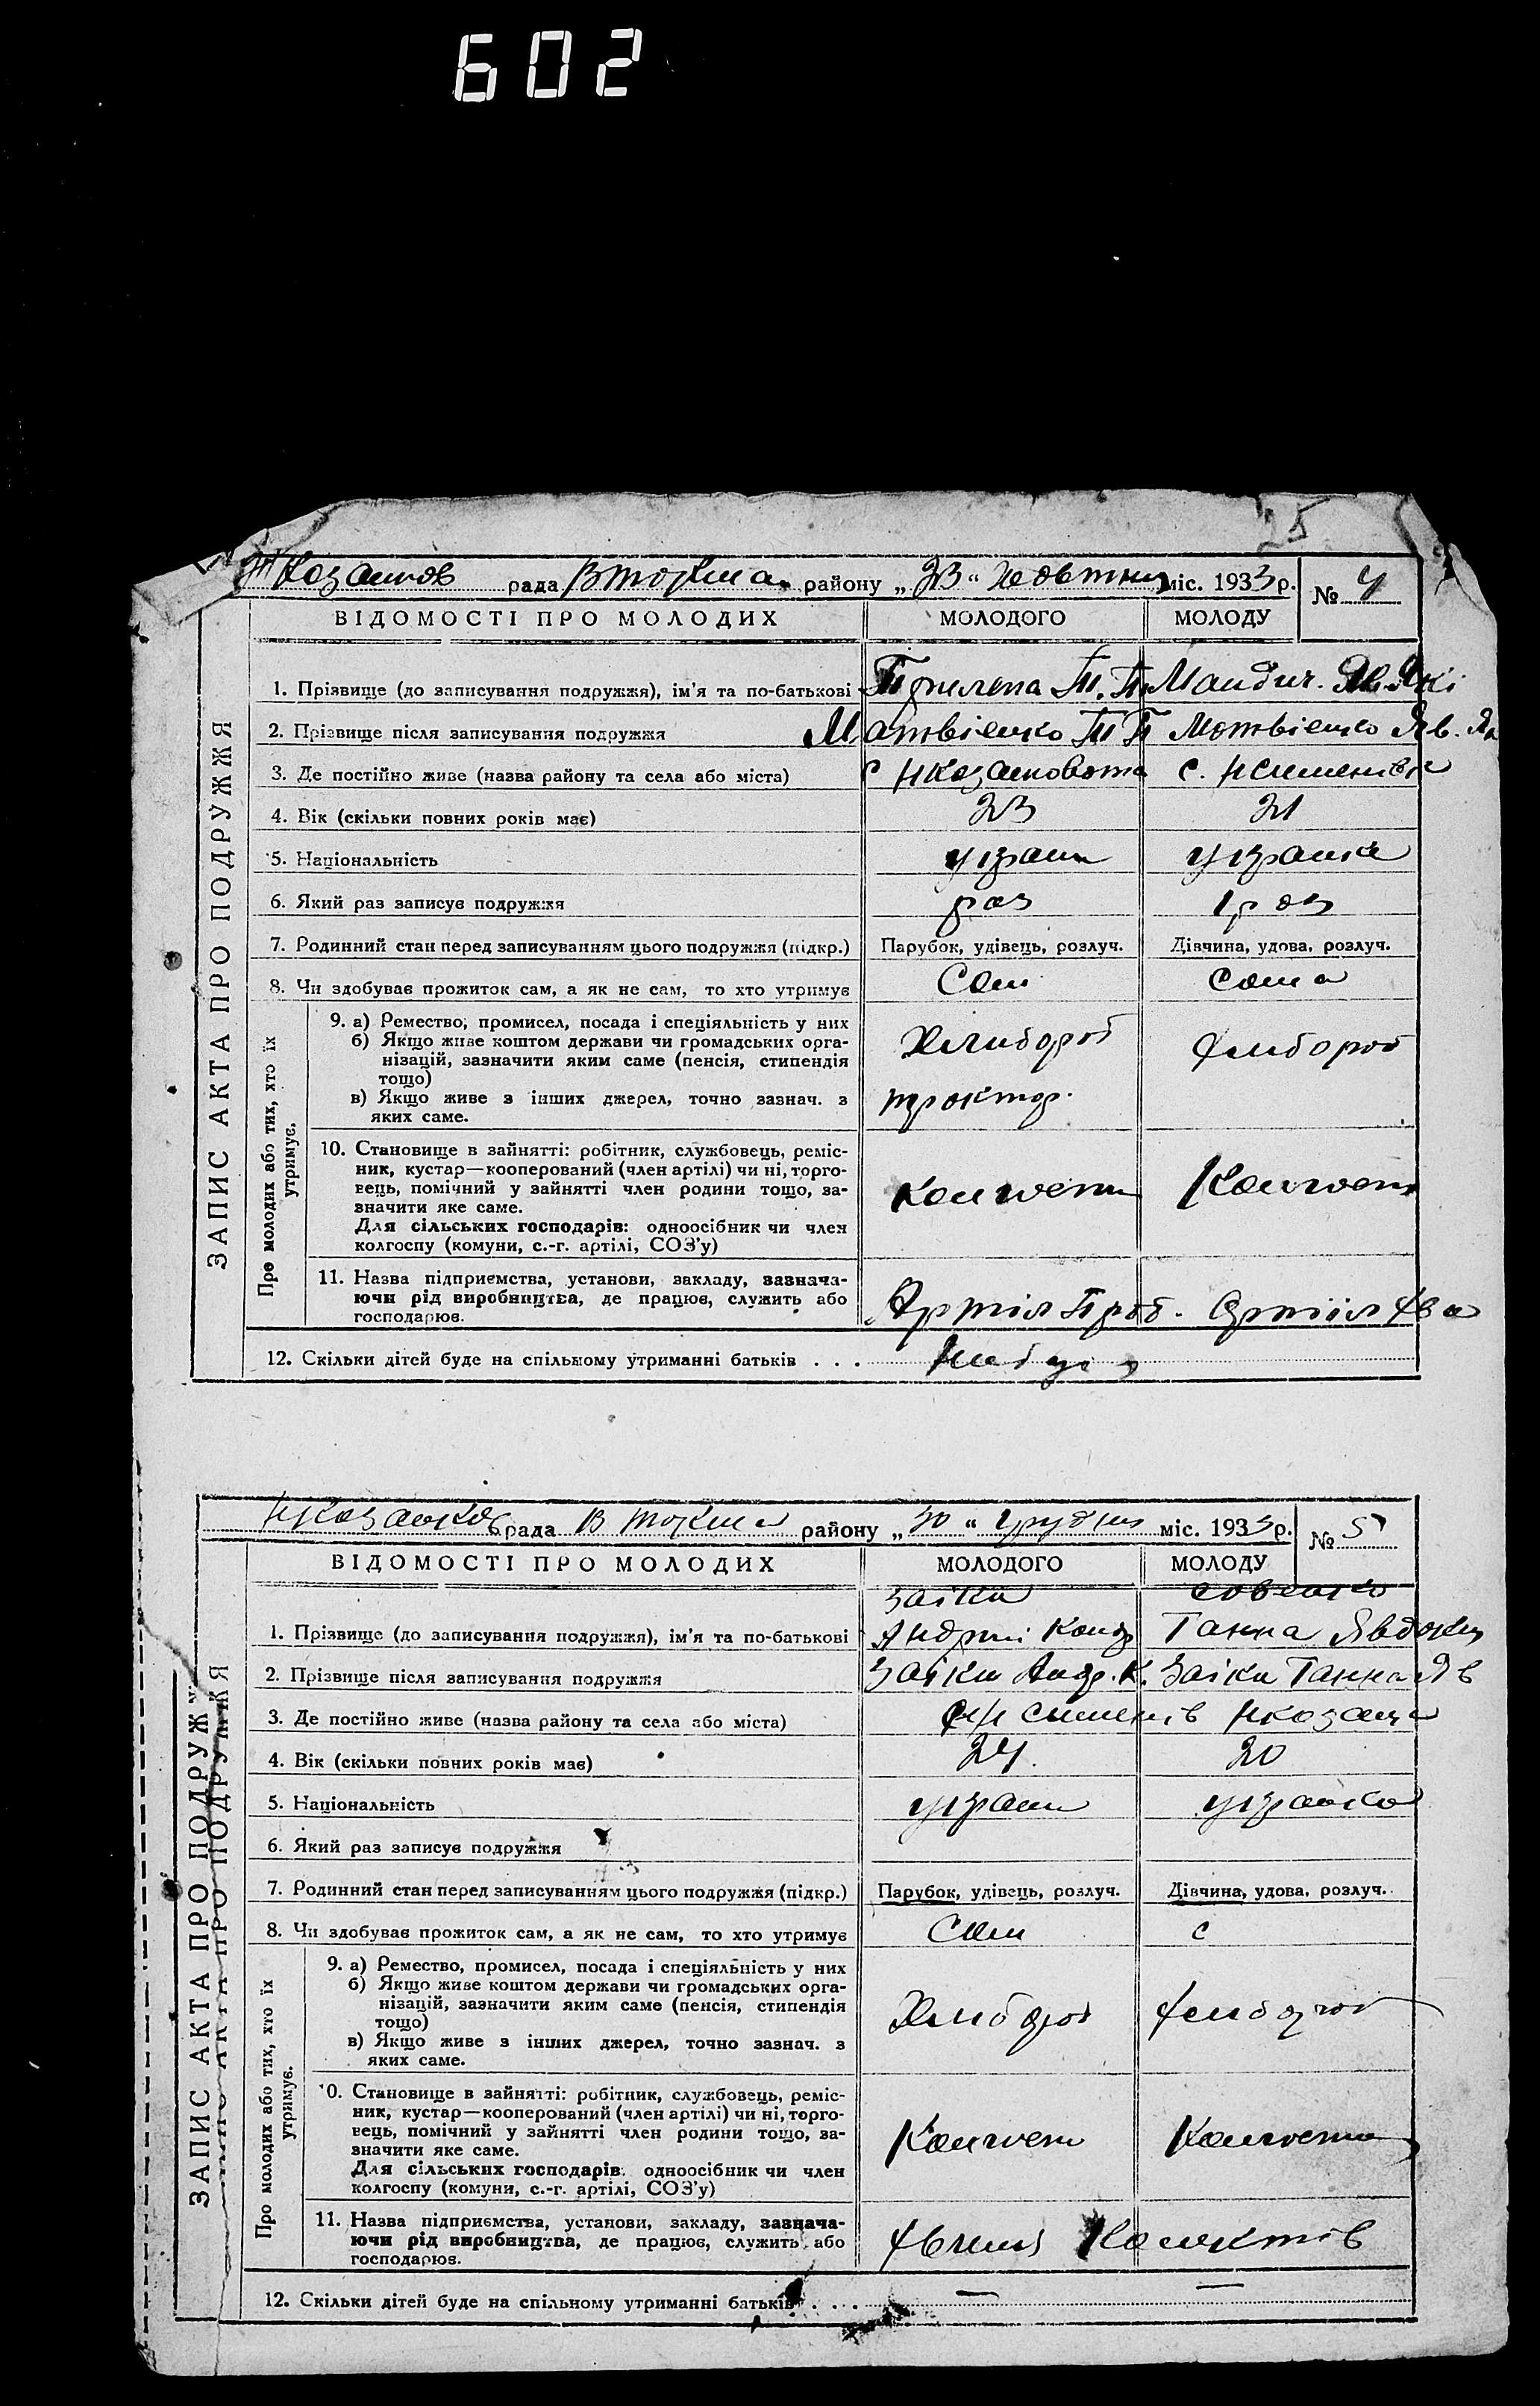 602
25
рада В Токма району „23“ жовтня міс. 1933 р. № 4
ВІДОМОСТІ ПРО МОЛОДИХ МОЛОДОГО МОЛОДУ
ЗАПИС АКТА ПРО ПОДРУЖЖЯ
1. Прізвище (до записування подружжя), ім'я та по-батькові
2. Прізвище після записування подружжя Матвієнко Матвієнко Яв.
3. Де постійно живе (назва району та села або міста) с с.
4. Вік (скільки повних років має) 23 21
5. Національність україн українка
6. Який раз записує подружжя раз 1 раз
7. Родинний стан перед записуванням цього подружжя (підкр.) Парубок, удівець, розлуч. Дівчина, удова, розлуч.
8. Чи здобуває прожиток сам, а як не сам, то хто утримує Сам Сама
Про молодих або тих, хто їх утримує.
9. а) Ремество, промисел, посада і спеціяльність у них
б) Якщо живе коштом держави чи громадських орга-
нізацій, зазначити яким саме (пенсія, стипендія
тощо)
Хлибороб Хлибороб
в) Якщо живе з інших джерел, точно зазнач. з
яких саме.
трактор.
10. Становище в зайнятті: робітник, службовець, реміс-
ник, кустар—кооперований (член артілі) чи ні, торго-
вець, помічний у зайнятті член родини тощо, за-
значити яке саме.
Для сільських господарів: одноосібник чи член
колгоспу (комуни, с.-г. артілі, СОЗ'у)
11. Назва підприємства, установи, закладу, зазнача-
ючи рід виробництва, де працює, служить або
господарює.
Артіл
12. Скільки дітей буде на спільному утриманні батьків . . .
рада В Токма району „30“ грудня міс. 1933 р. № 5
ВІДОМОСТІ ПРО МОЛОДИХ МОЛОДОГО МОЛОДУ
ЗАПИС АКТА ПРО ПОДРУЖЖЯ
ЗАПИС АКТА ПРО ПОДРУЖ
Заіка
1. Прізвище (до записування подружжя), ім'я та по-батькові Андрій Конд Ганна Явдоким
2. Прізвище після записування подружжя Заіка Андр. К. Заіка Ганна Яв
3. Де постійно живе (назва району та села або міста)
4. Вік (скільки повних років має) 24 20
5. Національність україн українка
6. Який раз записує подружжя
7. Родинний стан перед записуванням цього подружжя (підкр.) Парубок, удівець, розлуч. Дівчина, удова, розлуч.
8. Чи здобуває прожиток сам, а як не сам, то хто утримує Сам с
Про молодих або тих, хто їх утримує.
9. а) Ремество, промисел, посада і спеціяльність у них
б) Якщо живе коштом держави чи громадських орга-
нізацій, зазначити яким саме (пенсія, стипендія
тощо)
Хлибороб Хлибороб
в) Якщо живе з інших джерел, точно зазнач. з
яких саме.
10. Становище в зайнятті: робітник, службовець, реміс-
ник, кустар—кооперований (член артілі) чи ні, торго-
вець, помічний у зайнятті член родини тощо, за-
значити яке саме.
Для сільських господарів: одноосібник чи член
колгоспу (комуни, с.-г. артілі, СОЗ'у)
11. Назва підприємства, установи, закладу, зазнача-
ючи рід виробництва, де працює, служить або
господарює.
12. Скільки дітей буде на спільному утриманні батьків . . . — —